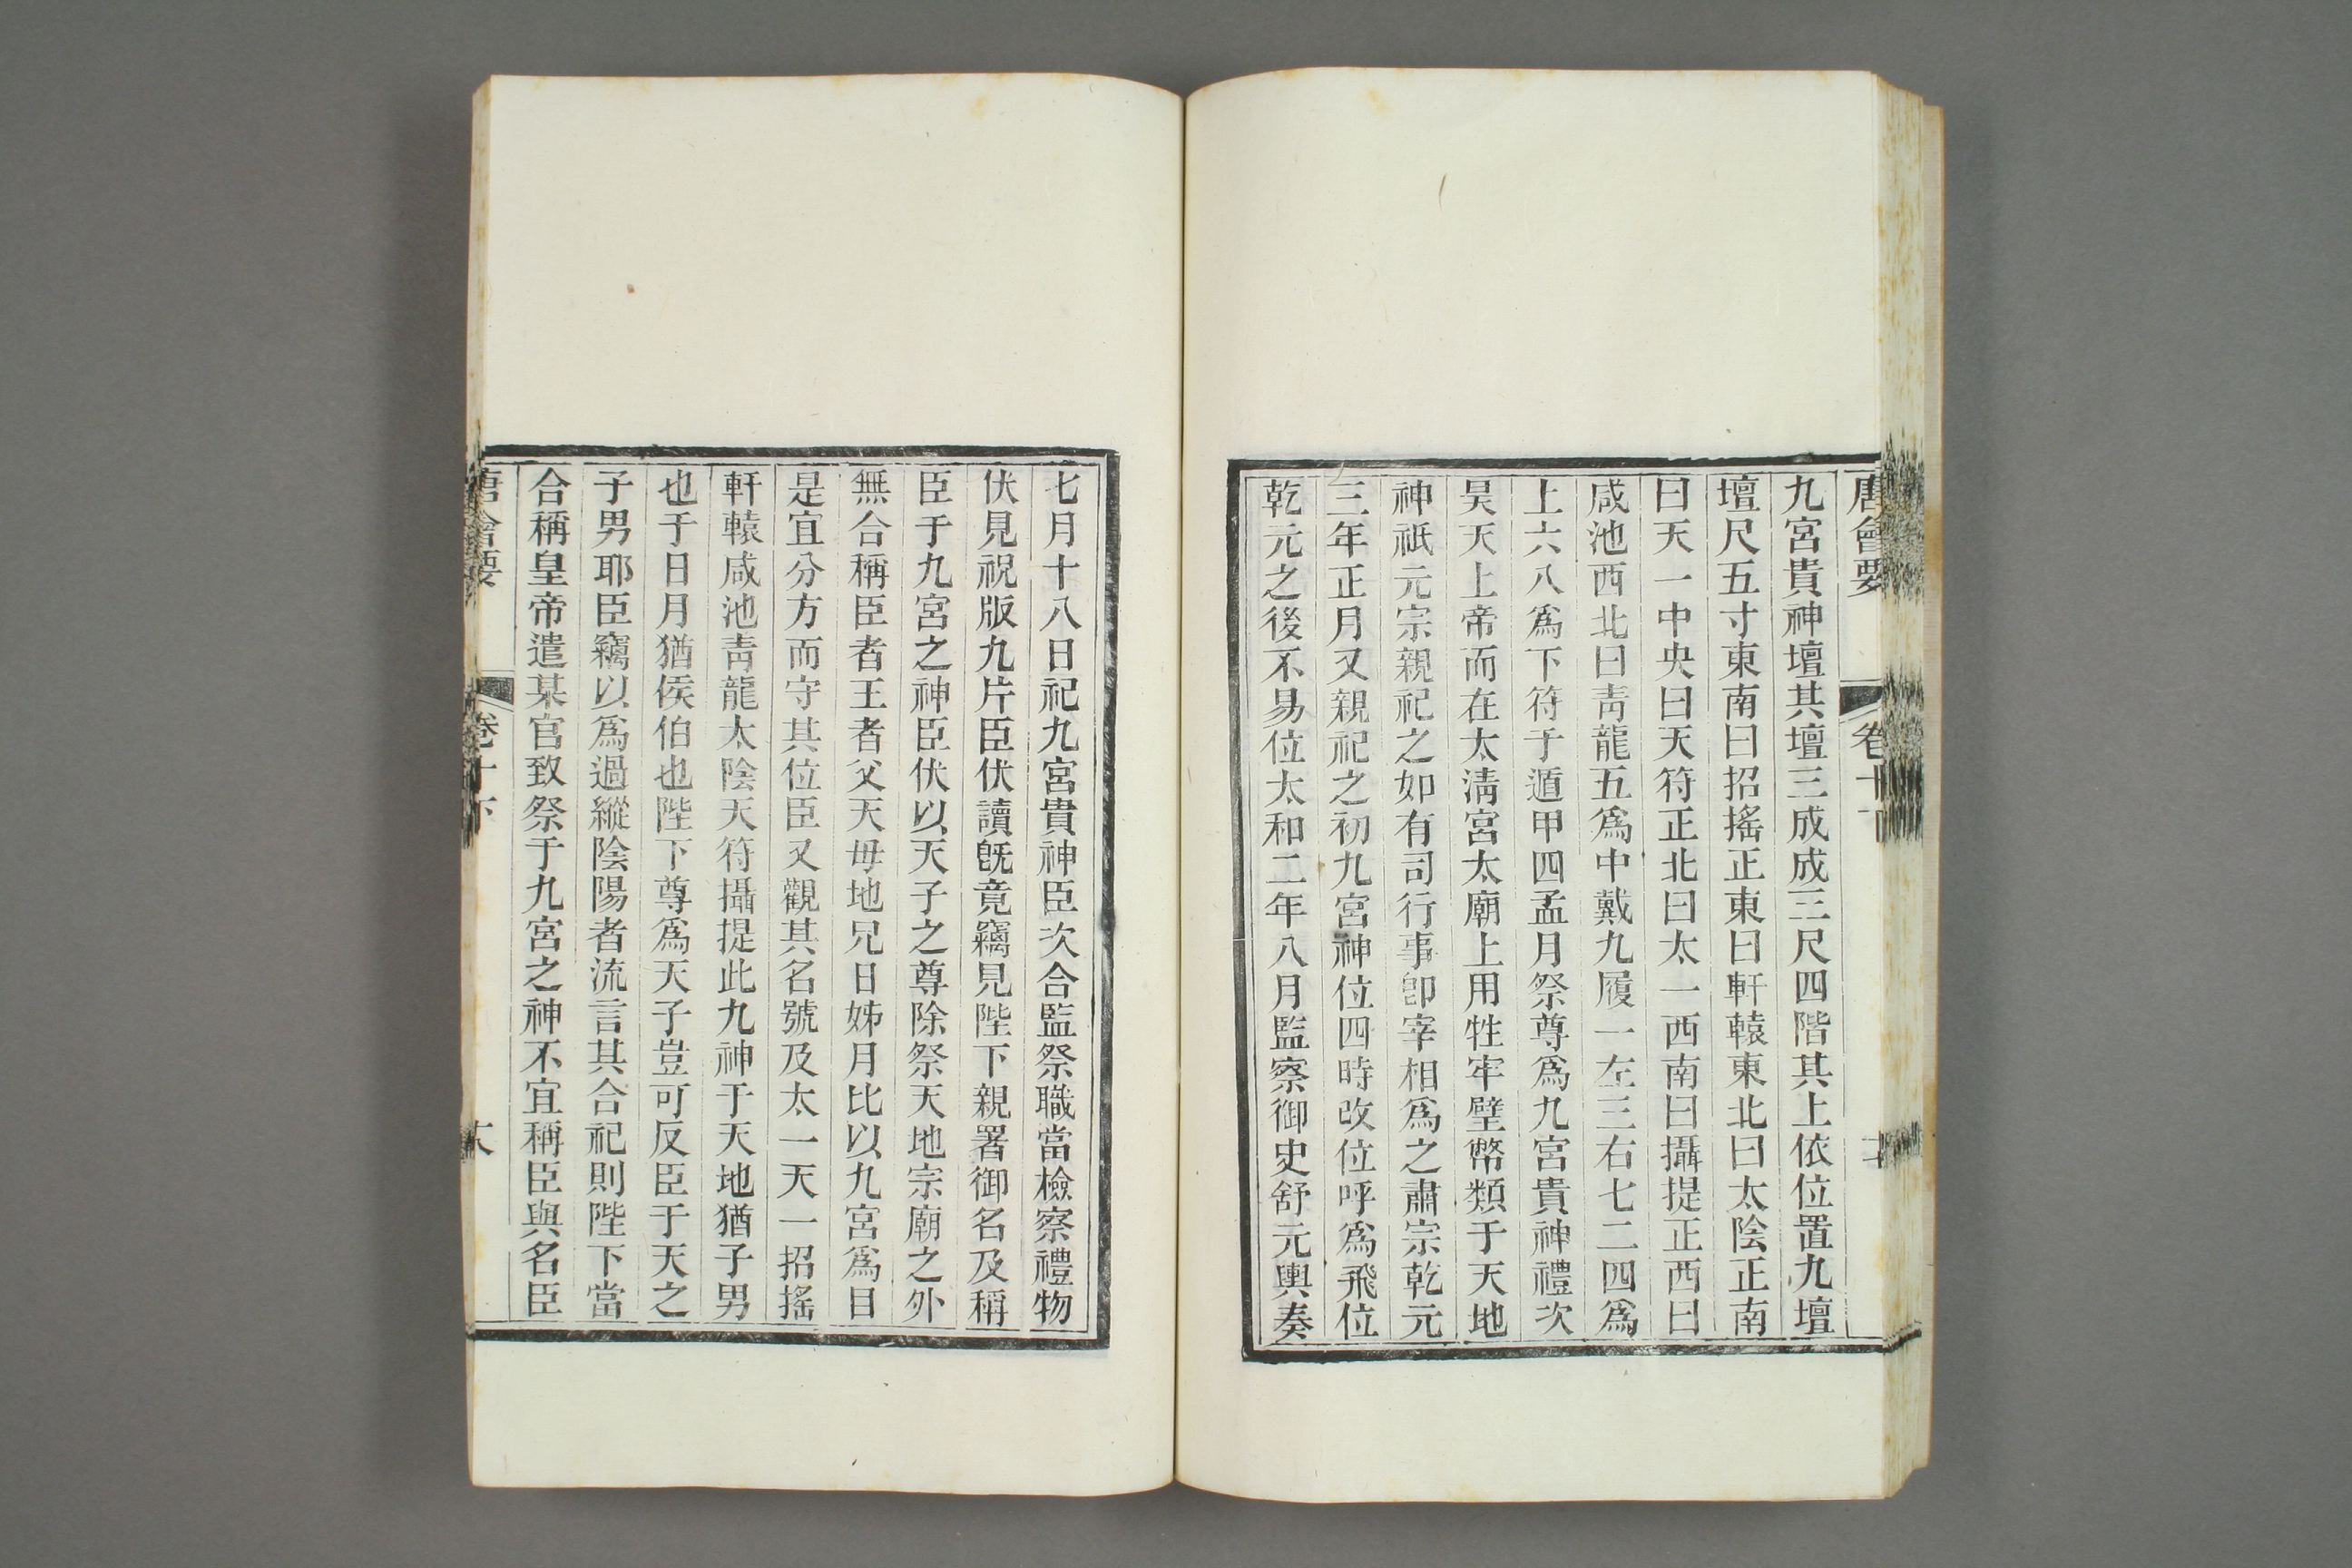 唐會要 卷十下
九宮貴神壇其壇三成成三尺四階其上依位置九壇
壇尺五寸東南曰招搖正東曰軒轅東北曰太陰正南
曰天一中央曰天符正北曰太一西南曰攝提正西曰
咸池西北曰靑龍五爲中戴九履一左三右七二四爲
上六八爲下符于遁甲四孟月祭尊爲九宮貴神禮次
昊天上帝而在太淸宮太廟上用牲牢璧幣類于天地
神祇元宗親祀之如有司行事卽宰相爲之肅宗乾元
三年正月又親祀之初九宮神位四時改位呼爲飛位
乾元之後不易位太和二年八月監察御史舒元輿奏
七月十八日祀九宮貴神臣次合監祭職當檢察禮物
伏見祝版九片臣伏讀旣竟竊見陛下親署御名及稱
臣于九宮之神臣伏以天子之尊除祭天地宗廟之外
無合稱臣者王者父天母地兄日姊月比以九宮爲目
是宜分方而守其位臣又觀其名號及太一天一招搖
軒轅咸池靑龍太陰天符攝提此九神于天地猶子男
也于日月猶侯伯也陛下尊爲天子豈可反臣于天之
子男耶臣竊以爲過縱陰陽者流言其合祀則陛下當
合稱皇帝遣某官致祭于九宮之神不宜稱臣與名臣
唐會要 卷十下